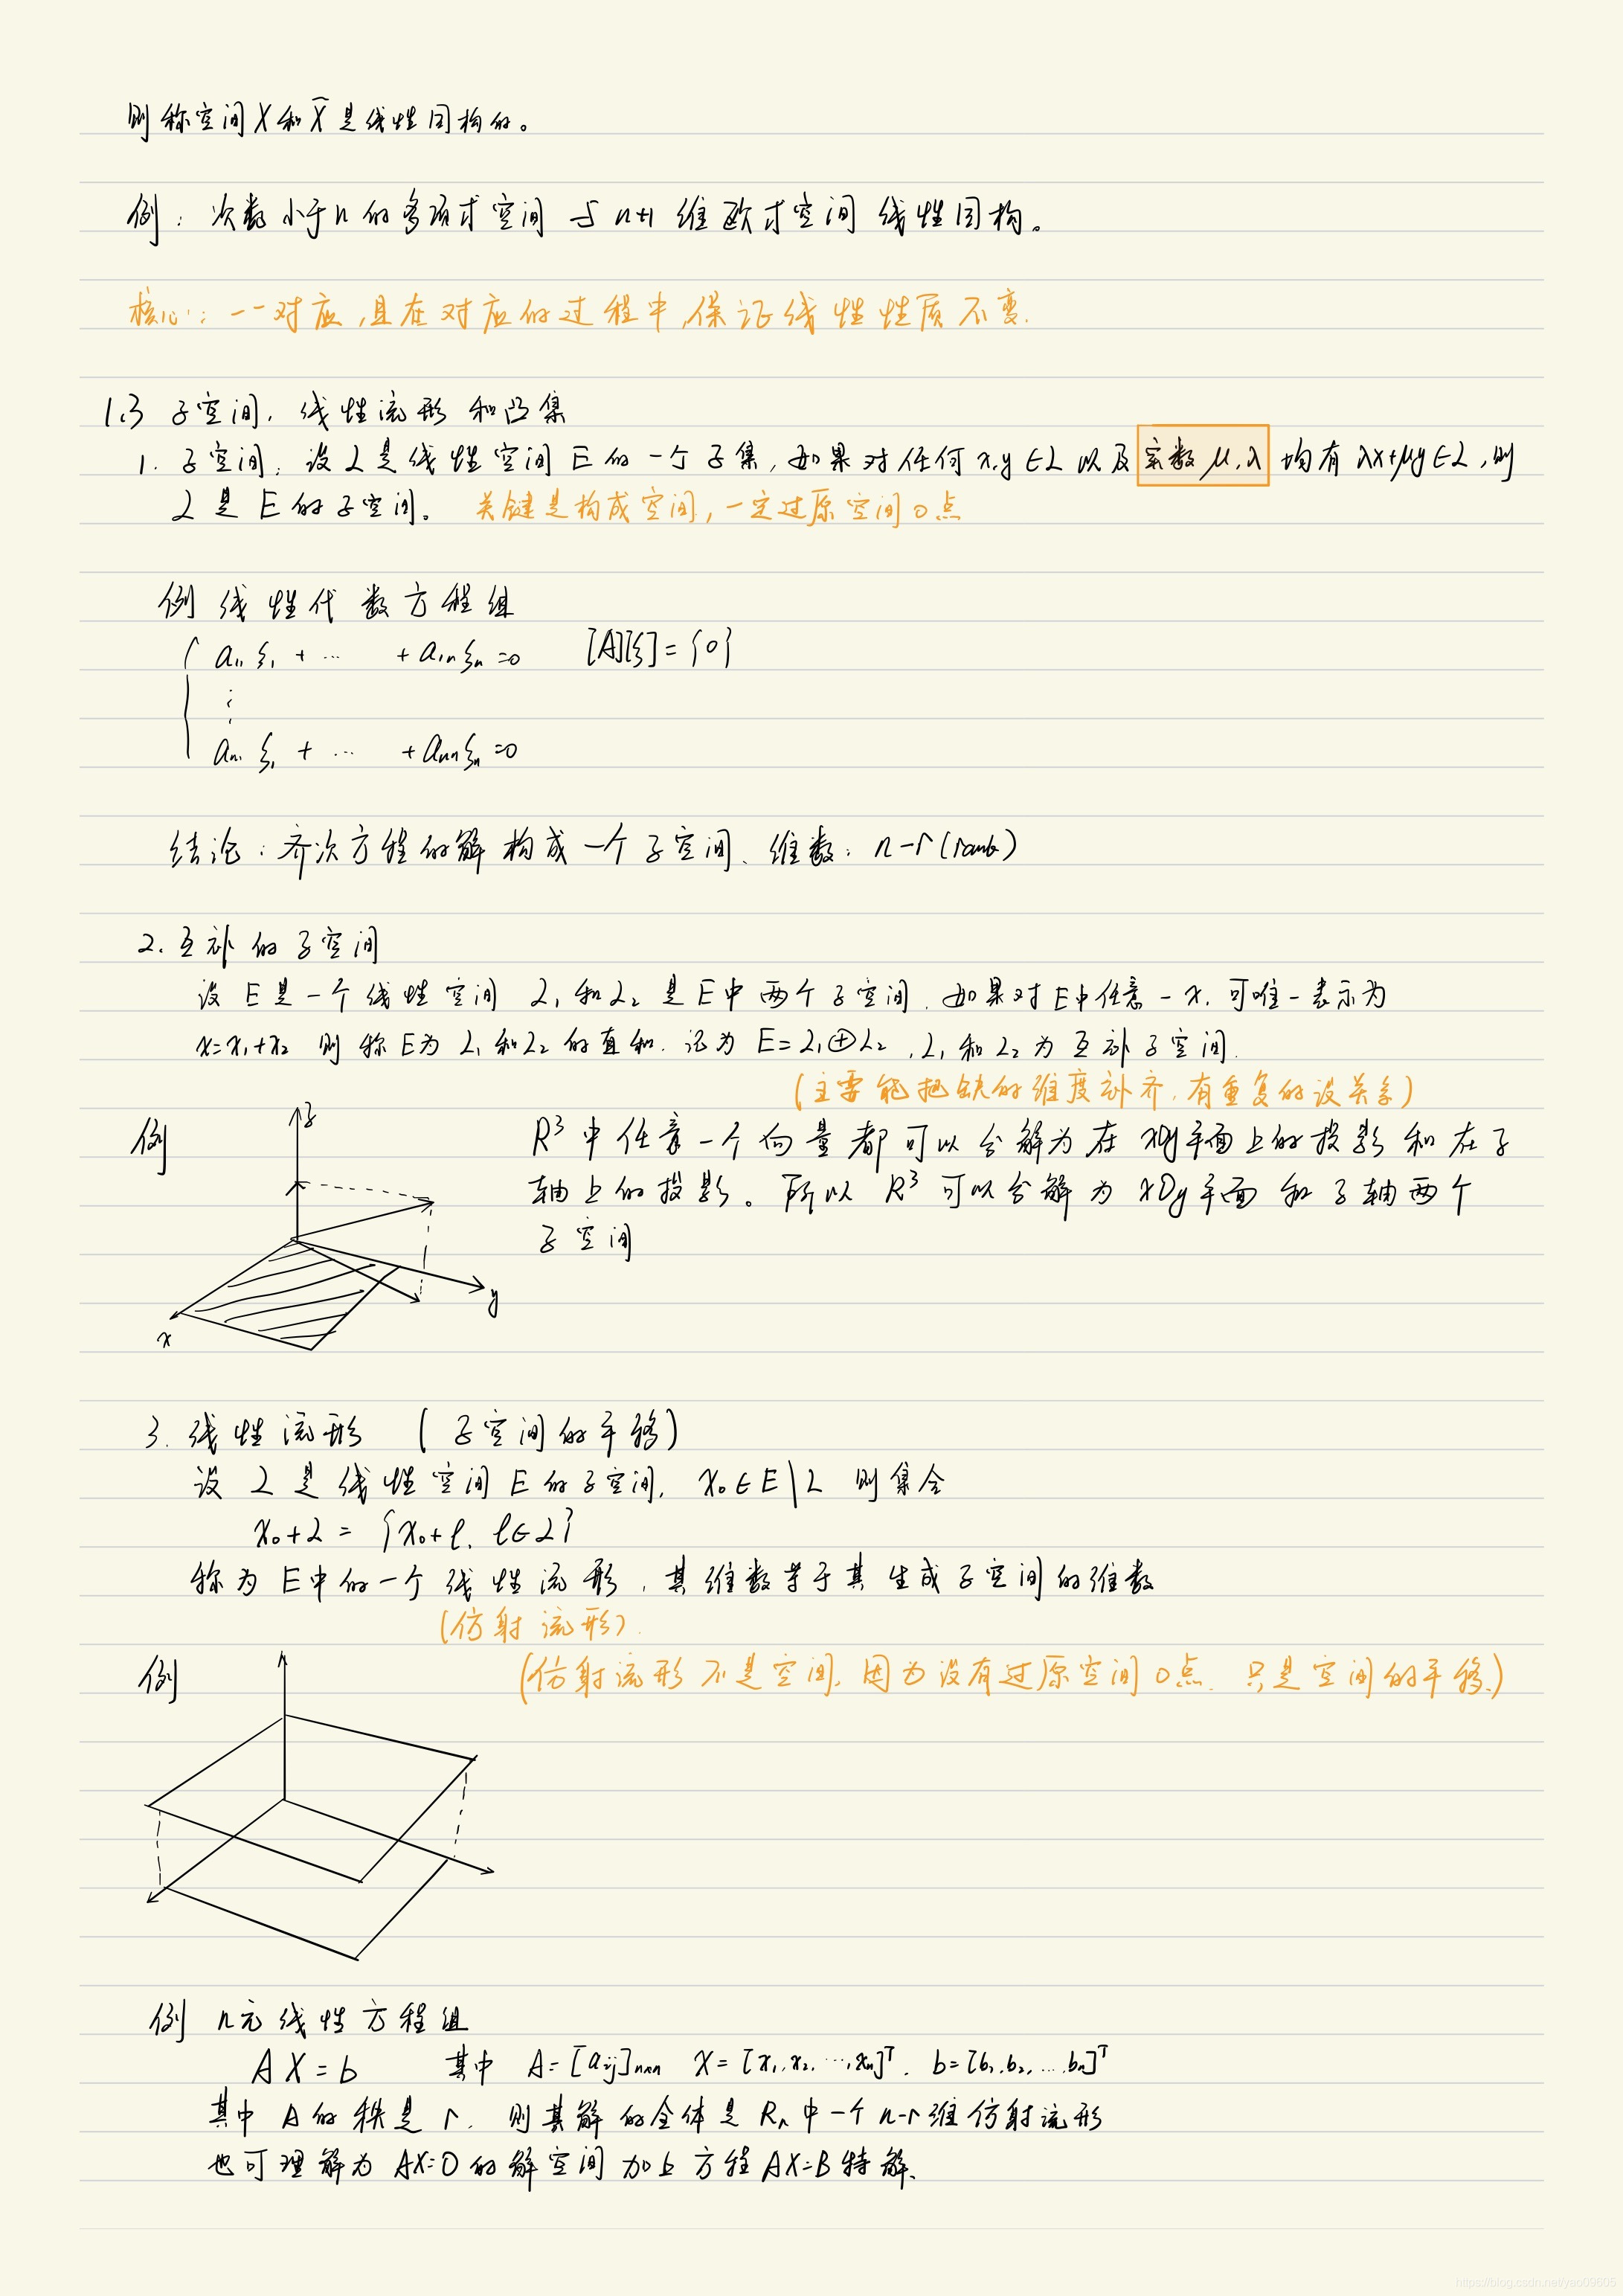 则称空间X和X̄是线性同构的。
例：次数小于n的多项式空间与n+1维欧式空间线性同构。
核心：一一对应,且在对应的过程中,保证线性性质不变.
1.3 子空间,线性流形和凸集
1. 子空间：设L是线性空间E的一个子集,如果对任何x,y∈L以及实数μ,λ均有λx+μy∈L,则
L是E的子空间。 关键是构成空间,一定过原空间0点
例 线性代数方程组
a₁₁ξ₁ + ⋯ + a₁ₙξₙ=0 [A][ξ]={0}
⋮
aₙ₁ξ₁ + ⋯ + aₙₙξₙ=0
结论：齐次方程的解构成一个子空间、维数：n-r(rank)
2. 互补的子空间
设E是一个线性空间 L₁和L₂是E中两个子空间.如果对E中任意一x,可唯一表示为
x=x₁+x₂ 则称E为L₁和L₂的直和.记为E=L₁⊕L₂,L₁和L₂为互补子空间.
(主要能把缺的维度补齐,有重复的没关系)
例
z
x
y
R³中任意一个向量都可以分解为在xOy平面上的投影和在z
轴上的投影。所以R³可以分解为xOy平面和z轴两个
子空间
3. 线性流形 (子空间的平移)
设L是线性空间E的子空间, x₀∈E\L 则集合
x₀+L = {x₀+l, l∈L}
称为E中的一个线性流形,其维数等于其生成子空间的维数
(仿射流形).
例 (仿射流形不是空间,因为没有过原空间0点.只是空间的平移.)
例 n元线性方程组
AX=b 其中 A=[aij]n×n X=[x₁,x₂,⋯,xₙ]ᵀ. b=[b₁,b₂,…,bₙ]ᵀ
其中A的秩是r. 则其解的全体是Rₙ中一个n-r维仿射流形
也可理解为AX=0的解空间加上方程AX=B特解.
https://blog.csdn.net/yao09605